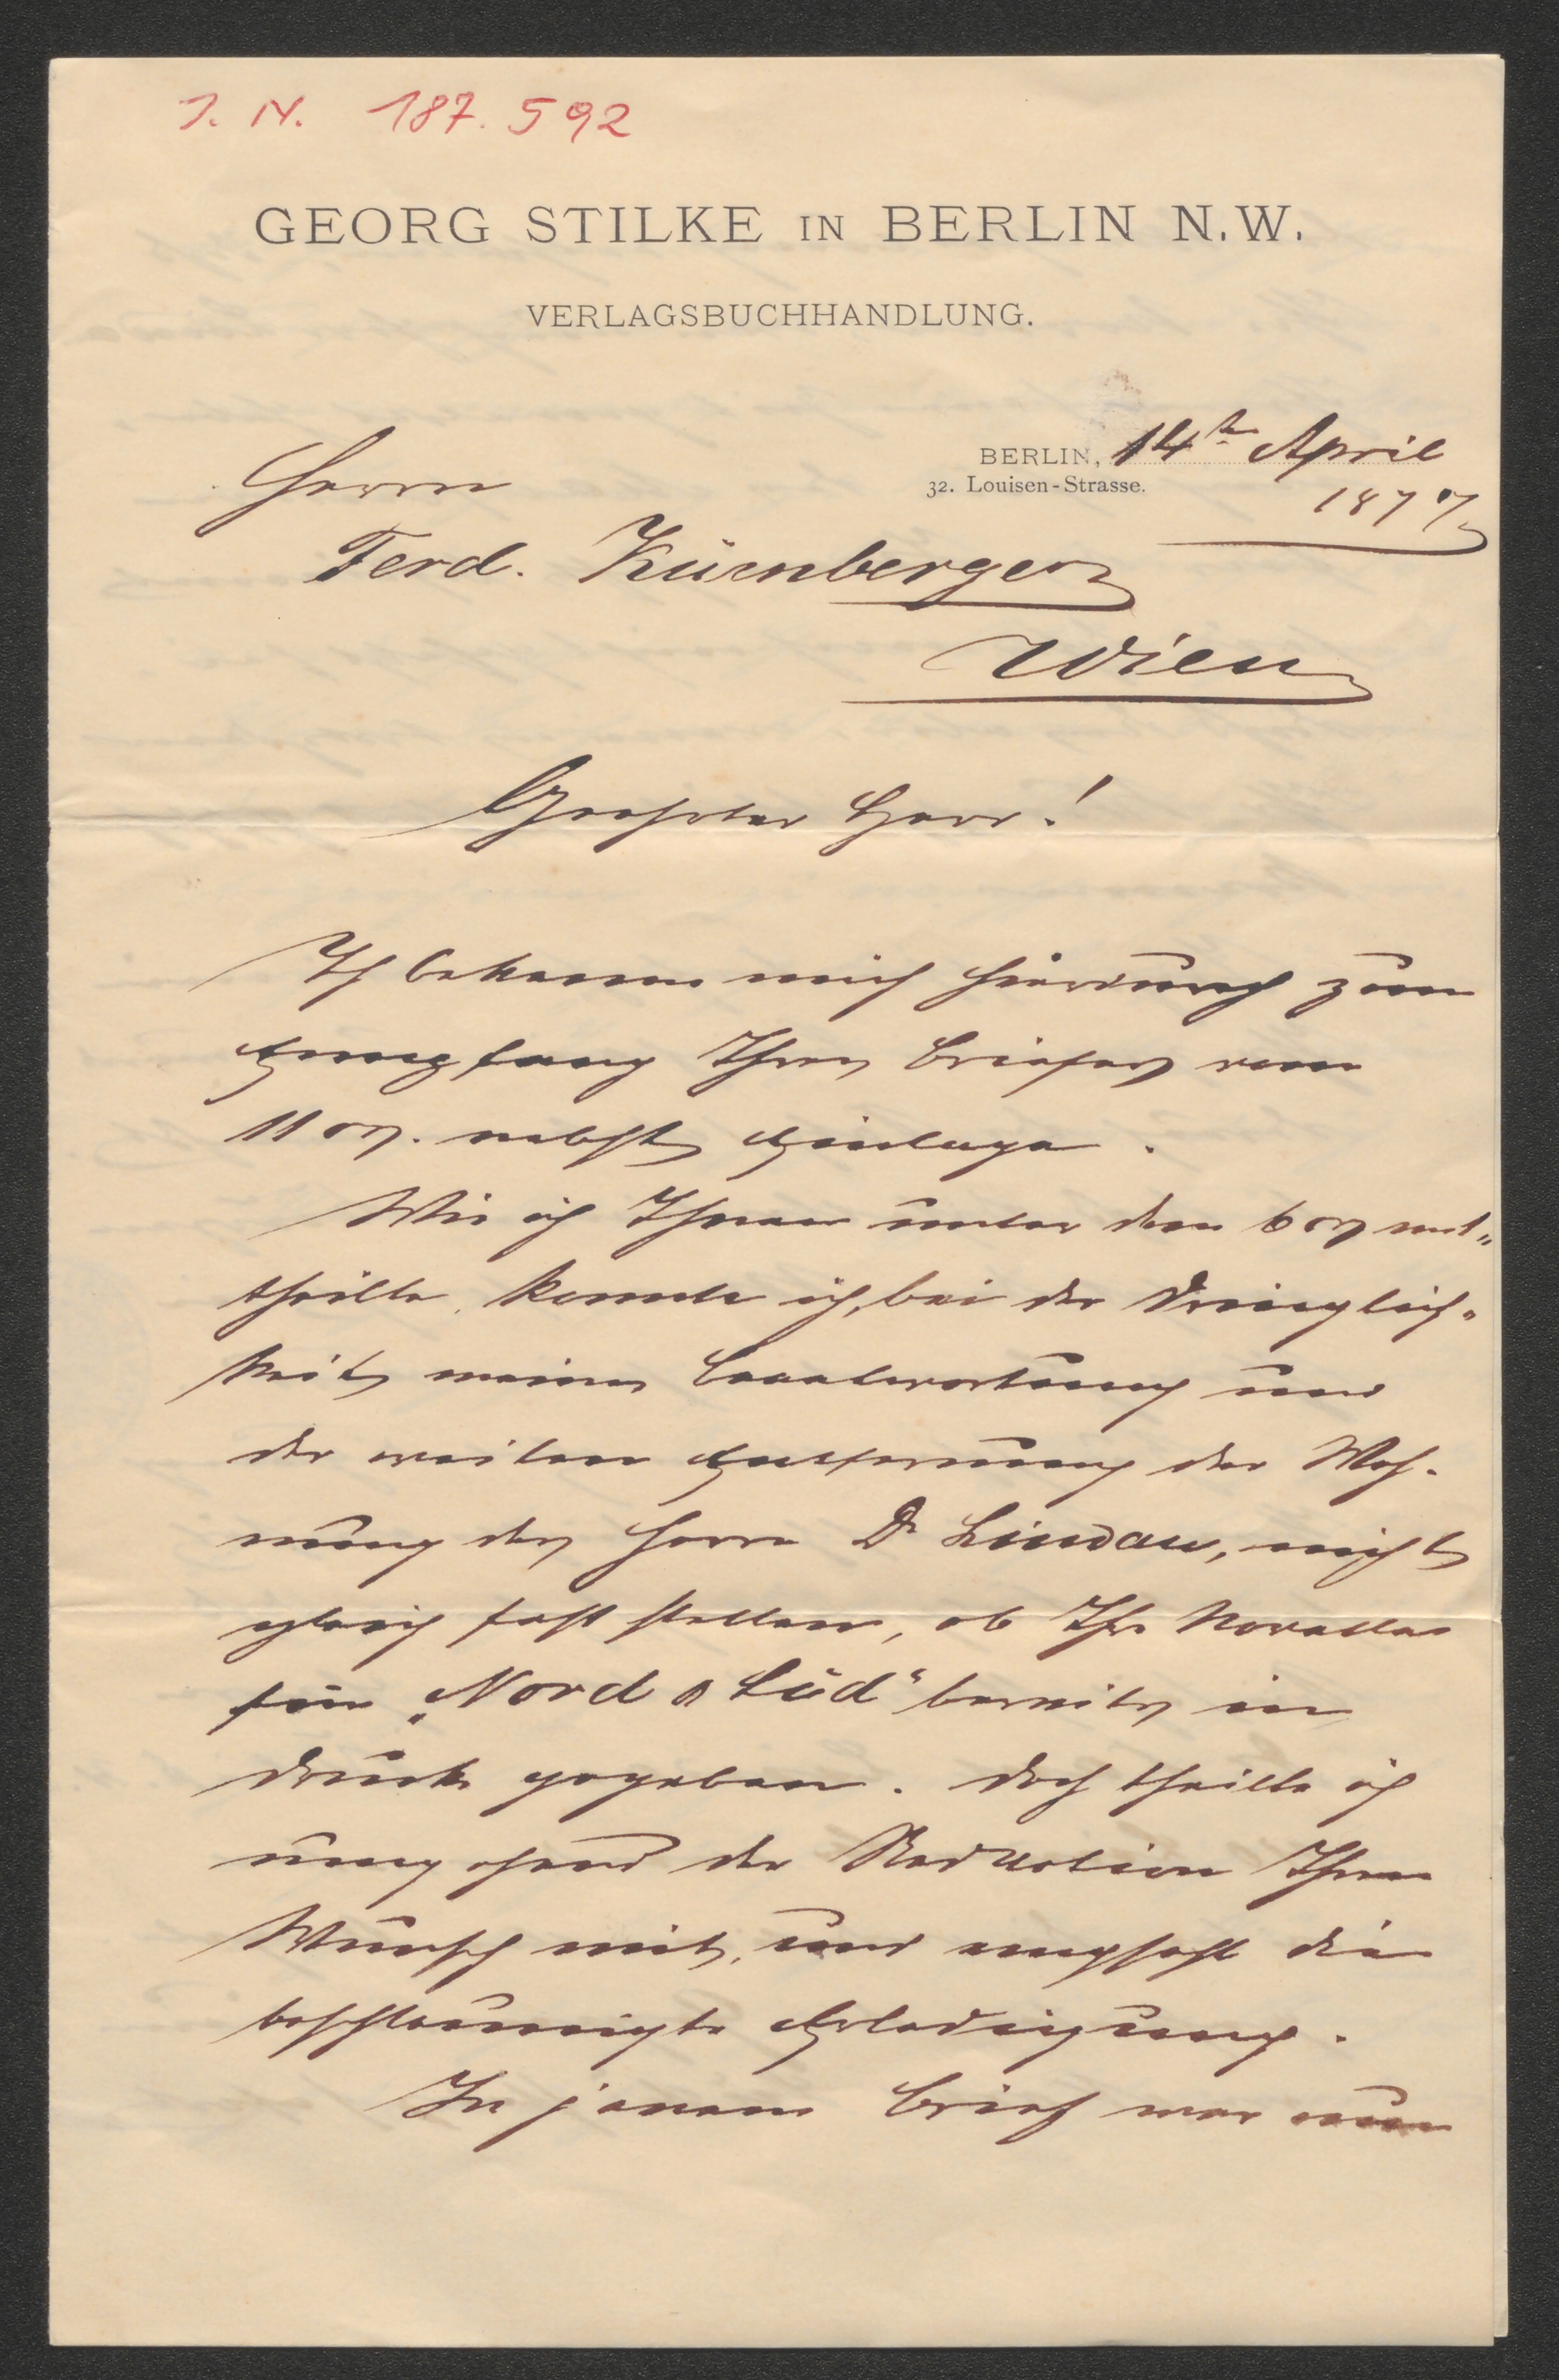 J. N. 187.592
GEORG STILKE IN BERLIN N.W.
VERLAGSBUCHHANDLUNG.
BERLIN, 14ten April
32. Louisen-Strasse.
1877
Herrn
Ferd. Kürnberger
Wien
Geehrter Herr!
Ich bekenne mich hierdurch zum
Empfang Ihres Briefes vom
11 ds. nebst Einlage.
Wie ich Ihnen unter dem 6 ds mit„
theilte, konnte ich, bei der Dringlich„
keit meiner Beantwortung und
der weiten Entfernung der Woh-
nung des Herrn Dr Lindau, nicht
gleich fest stellen, ob Ihre Novelle
für „Nord & Süd“ bereits in
Druck gegeben. Doch theilte ich
umgehend der Redaktion Ihren
Wunsch mit, und empfahl die
beschleunigte Erledigung.
In jenem Brief war nun